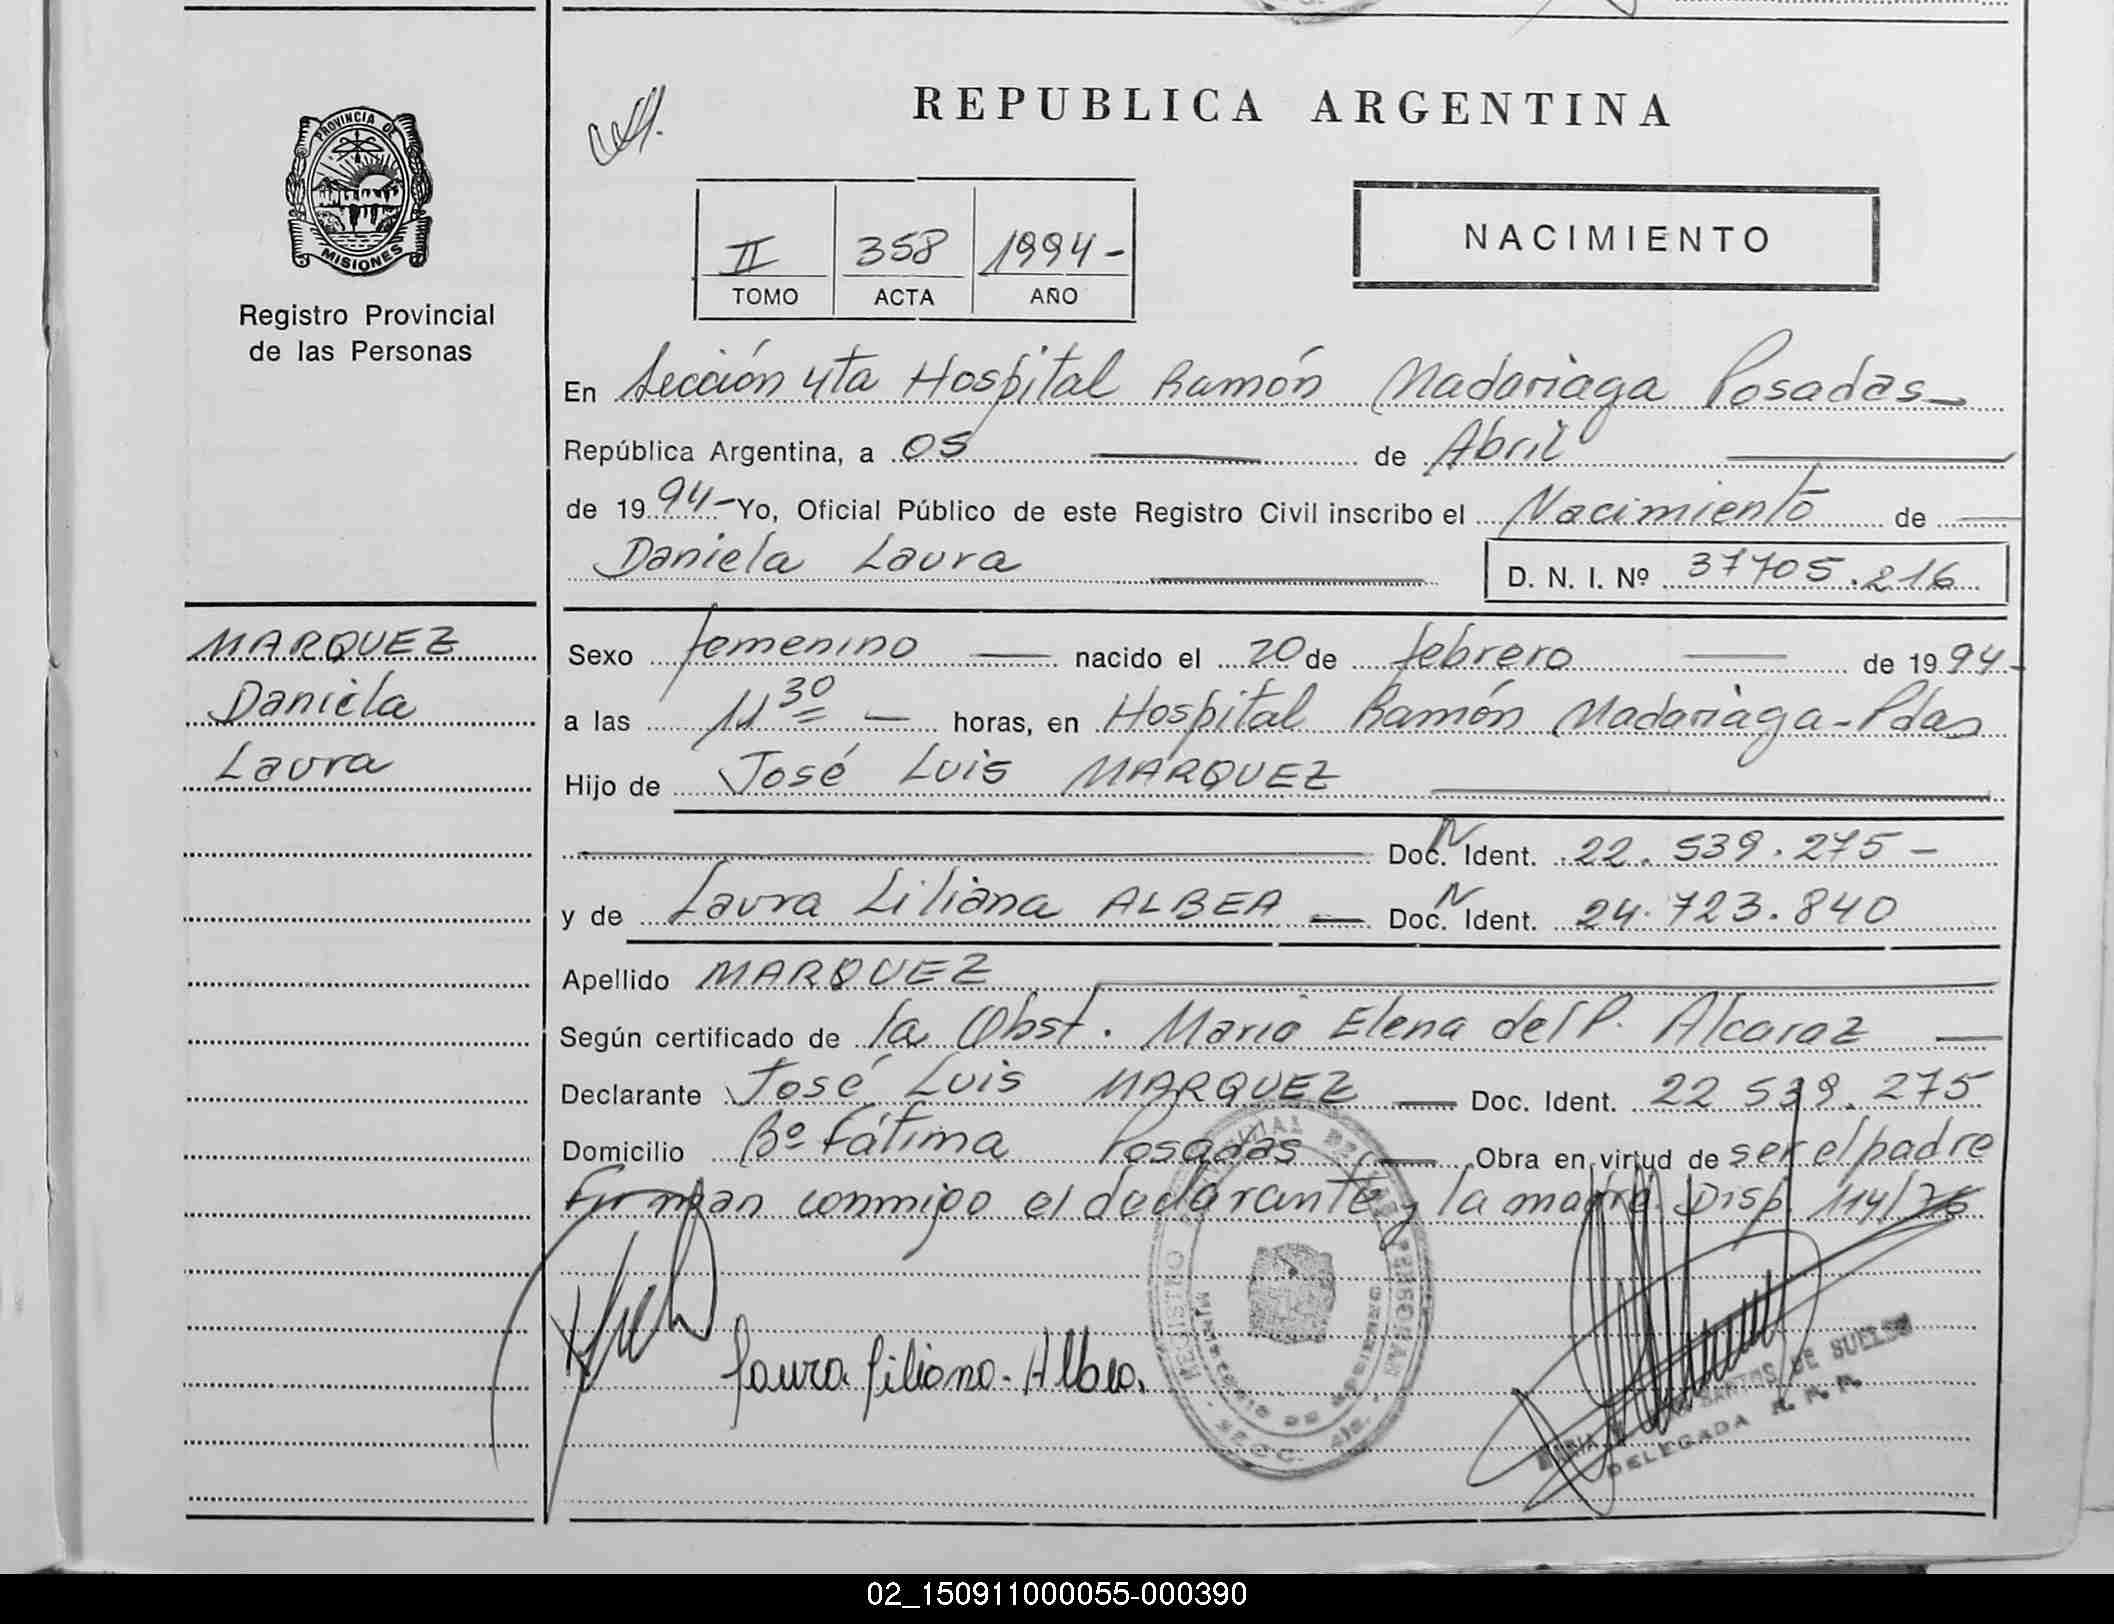 REPUBLICA ARGENTINA
PROVINCIA DE
MISIONES
Registro Provincial
de las Personas
II 358 1994-
TOMO ACTA AÑO
NACIMIENTO
En Sección 4ta Hospital Ramón Madariaga Posadas
República Argentina, a 05 de Abril
de 1994- Yo, Oficial Público de este Registro Civil inscribo el Nacimiento de
Daniela Laura D. N. I. Nº 37705.216
MARQUEZ
Daniela
Laura
Sexo femenino nacido el 20 de febrero de 1994-
a las 11 30 horas, en Hospital Ramón Madariaga-Pdas
Hijo de José Luis MARQUEZ
Doc. N Ident. 22.539.275-
y de Laura Liliana ALBEA Doc. N Ident. 24.723.840
Apellido MARQUEZ
Según certificado de la Obst. Maria Elena del P. Alcaraz
Declarante José Luis MARQUEZ Doc. Ident. 22 539.275
Domicilio Bº Fátima Posadas Obra en virtud de ser el padre
firman conmigo el declarante y la madre. Disp. 114/76
Laura Liliana. Albea.
SANTOS DE SUELDO
DELEGADA R. P. P.
02_150911000055-000390